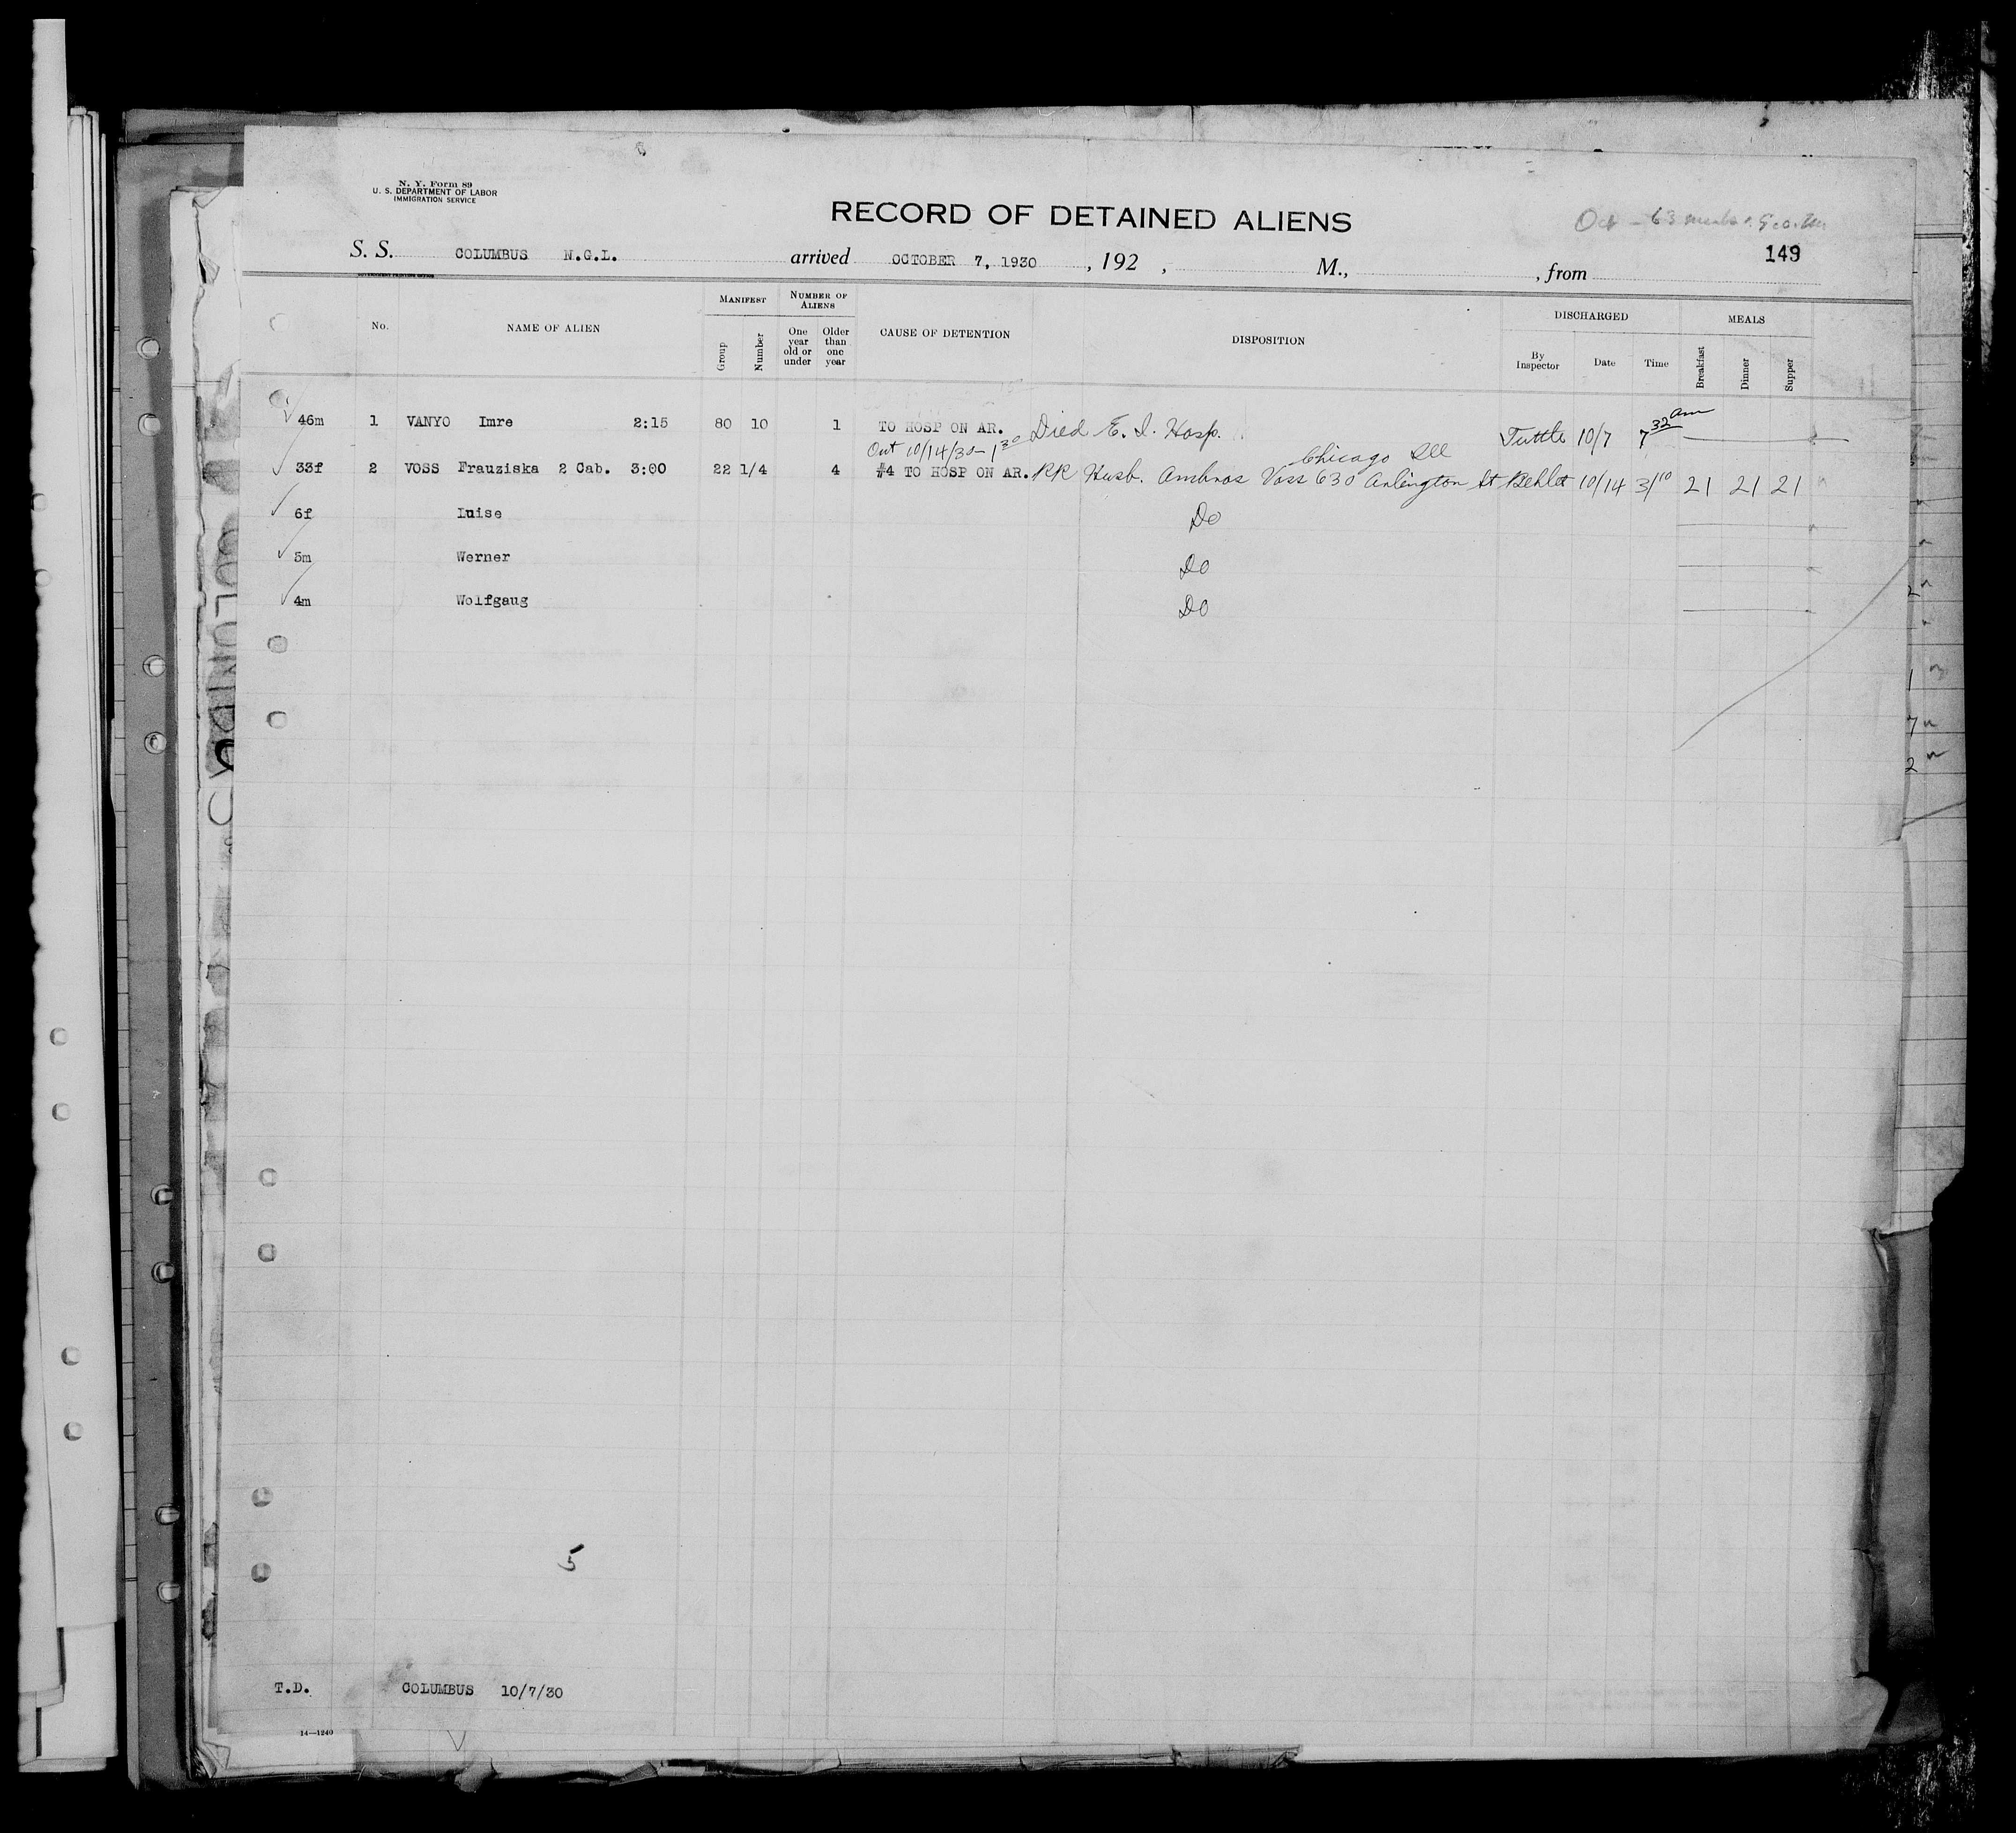 N. Y. Form 89
U. S. DEPARTMENT OF LABOR
IMMIGRATION SERVICE
RECORD OF DETAINED ALIENS
Oct - 63 meals
149
S. S. COLUMBUS N.G.L. arrived OCTOBER 7, 1930, 192 , M., , from
GOVERNMENT PRINTING OFFICE
No. NAME OF ALIEN MANIFEST Group Number NUMBER OF ALIENS One year old or under Older than one year CAUSE OF DETENTION DISPOSITION DISCHARGED By Inspector Date Time MEALS Breakfast Dinner Supper
46m 1 VANYO Imre 2:15 80 10 1 TO HOSP ON AR. Died E. I. Hosp. Tuttle 10/7 7 32 am
Out 10/14/30 - 1 30 Chicago Ill
33f 2 VOSS Frauziska 2 Cab. 3:00 22 1/4 4 #4 TO HOSP ON AR. RR Husb. Ambros Voss 630 Arlington St 10/14 3/10 21 21 21
6f Luise Do
5m Werner Do
4m Wolfgaug Do
5
T.D. COLUMBUS 10/7/30
14—1240
COLUMBUS